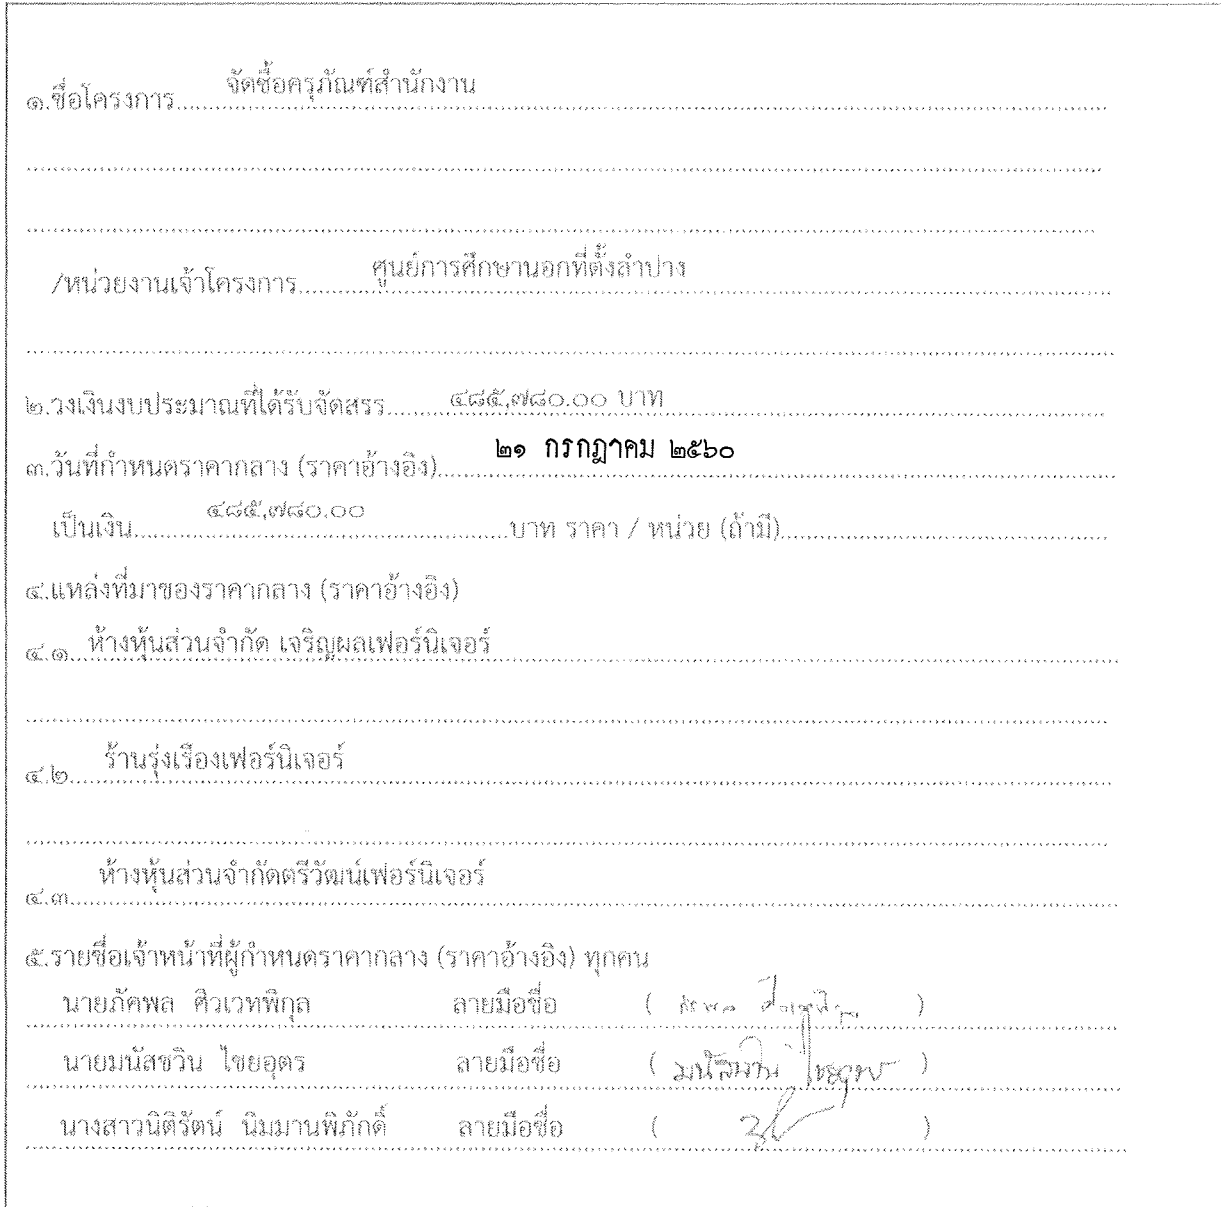 ๑.ชื่อโครงการ.....จัดซื้อครุภัณฑ์สำนักงาน
/หน่วยงานเจ้าโครงการ.....ศูนย์การศึกษานอกที่ตั้งลำปาง
๒.วงเงินงบประมาณที่ได้รับจัดสรร.....๔๘๕,๗๘๐.๐๐ บาท
๓.วันที่กำหนดราคากลาง (ราคาอ้างอิง).....๒๑ กรกฎาคม ๒๕๖๐
เป็นเงิน.....๔๘๕,๗๘๐.๐๐.....บาท ราคา / หน่วย (ถ้ามี).....
๔.แหล่งที่มาของราคากลาง (ราคาอ้างอิง)
๔.๑ ห้างหุ้นส่วนจำกัด เจริญผลเฟอร์นิเจอร์
๔.๒.....ร้านรุ่งเรืองเฟอร์นิเจอร์
๔.๓.....ห้างหุ้นส่วนจำกัดตรีวัฒน์เฟอร์นิเจอร์
๕.รายชื่อเจ้าหน้าที่ผู้กำหนดราคากลาง (ราคาอ้างอิง) ทุกคน
นายภัคพล ศิวเวทพิกุล ลายมือชื่อ ( )
นายมนัสชวิน ไชยอุตร ลายมือชื่อ ( มนัสชวิน ไชยอุตร )
นางสาวนิติรัตน์ นิมมานพิภักดิ์ ลายมือชื่อ ( )